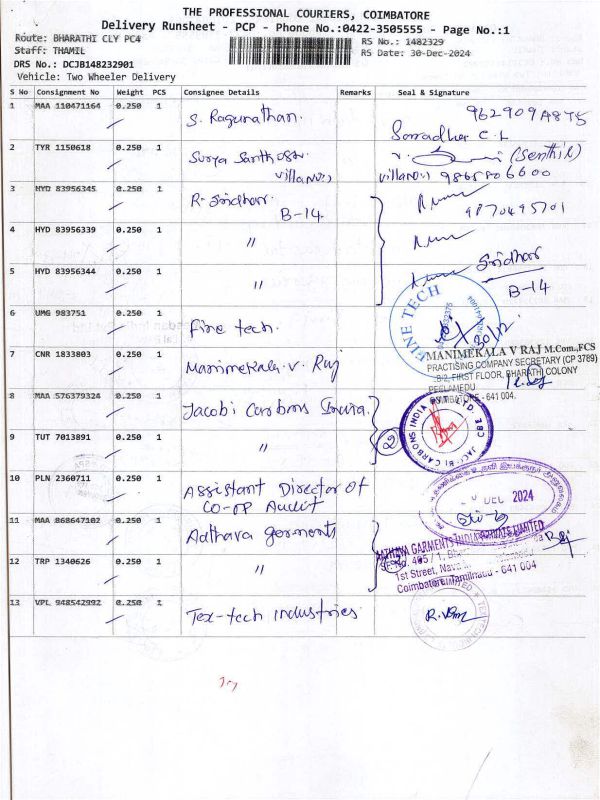 THE PROFESSIONAL COURIERS, COIMBATORE
Delivery Runsheet - PCP - Phone No.:0422-3505555 - Page No.:1
Route: BHARATHI CLY PC4
RS No.: 1482329
Staff: THAMIL
RS Date: 30-Dec-2024
DRS No.: DCJB148232901
Vehicle: Two Wheeler Delivery
S No Consignment No Weight PCS Consignee Details Remarks Seal & Signature
1 MAA 110471164 0.250 1 S. Ragunathan.
2 TYR 1150618 0.250 1 Surya Santhosh. (Senthil)
villa No:1 villa No:1 9865806600
3 HYD 83956345 0.250 1 R. Sridhar. 9870495701
B-14
4 HYD 83956339 0.250 1 "
5 HYD 83956344 0.250 1 " Sridhar
B-14
6 UMG 983751 0.250 1 Fine tech.
FINE TECH
7 CNR 1833803 0.250 1 Manimekala. V. Raj
MANIMEKALA V RAJ M.Com.,FCS
PRACTISING COMPANY SECRETARY (CP 3789)
B/2, FIRST FLOOR, BHARATHI COLONY
PEELAMEDU
COIMBATORE - 641 004.
8 MAA 576379324 0.250 1 Jacobi Carbons India.
JACOBI CARBONS INDIA PVT. LTD. CBE
9 TUT 7013891 0.250 1 " 2
10 PLN 2360711 0.250 1 Assistant Director of
CO-OP Audit
DEC 2024
11 MAA 868647102 0.250 1 Adhava garments
AADHAVA GARMENTS INDIA PRIVATE LIMITED
12 TRP 1340626 0.250 1 "
1st Street, Nava
Coimbatore, Tamilnadu - 641 004
13 VPL 948542992 0.250 1 Tex-tech industries